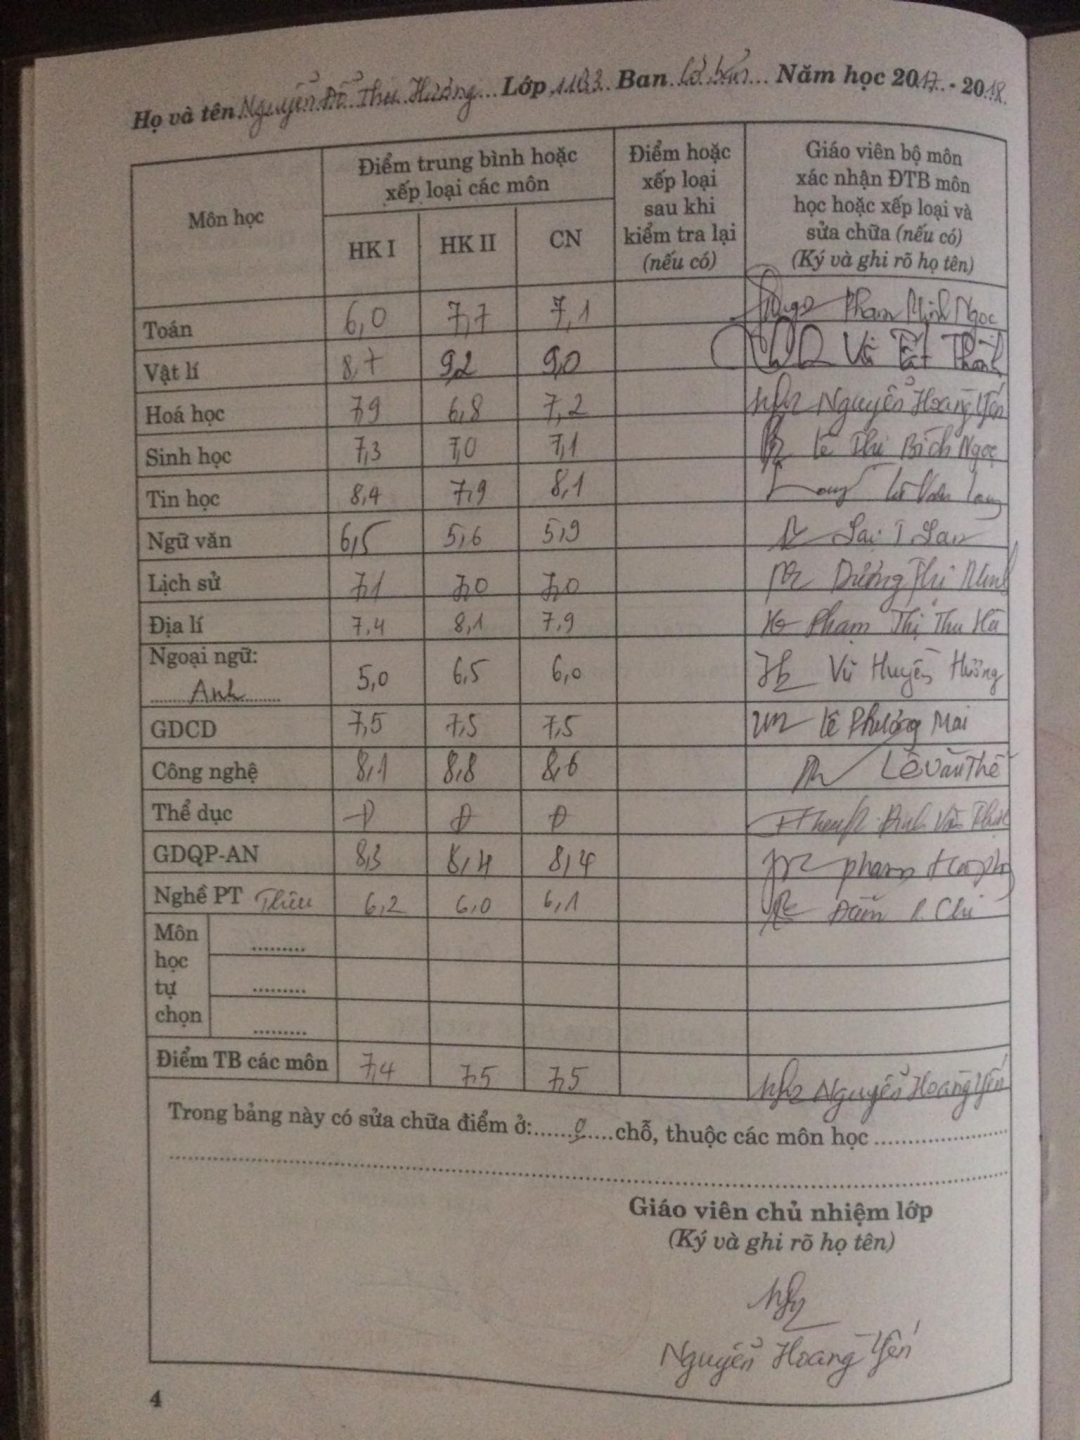 Họ và tên Nguyễn Đỗ Thu Hường Lớp 11B3 Ban Cơ bản Năm học 2017 - 2018
Môn học
Điểm trung bình hoặc
xếp loại các môn
HK I HK II CN
Điểm hoặc
xếp loại
sau khi
kiểm tra lại
(nếu có)
Giáo viên bộ môn
xác nhận ĐTB môn
học hoặc xếp loại và
sửa chữa (nếu có)
(Ký và ghi rõ họ tên)
Toán 6,0 7,7 7,1 Phạm Minh Ngọc
Vật lí 8,7 9,2 9,0 Vũ Tất Thành
Hoá học 7,9 6,8 7,2 Nguyễn Hoàng Yến
Sinh học 7,3 7,0 7,1 Lê Thị Bích Ngọc
Tin học 8,4 7,9 8,1
Ngữ văn 6,5 5,6 5,9 Lại T Lan
Lịch sử 7,1 7,0 7,0 Dương Thị Minh
Địa lí 7,4 8,1 7,9 Phạm Thị Thu Hà
Ngoại ngữ:
Anh 5,0 6,5 6,0 Vũ Huyền Hương
GDCD 7,5 7,5 7,5 Lê Phương Mai
Công nghệ 8,1 8,8 8,6 Lê Văn Thế
Thể dục Đ Đ Đ Đinh Văn
GDQP-AN 8,3 8,4 8,4 Phạm
Nghề PT Thêu 6,2 6,0 6,1 Chi
Môn
học
tự
chọn
Điểm TB các môn 7,4 7,5 7,5 Nguyễn Hoàng Yến
Trong bảng này có sửa chữa điểm ở:......0....chỗ, thuộc các môn học
Giáo viên chủ nhiệm lớp
(Ký và ghi rõ họ tên)
Nguyễn Hoàng Yến
4